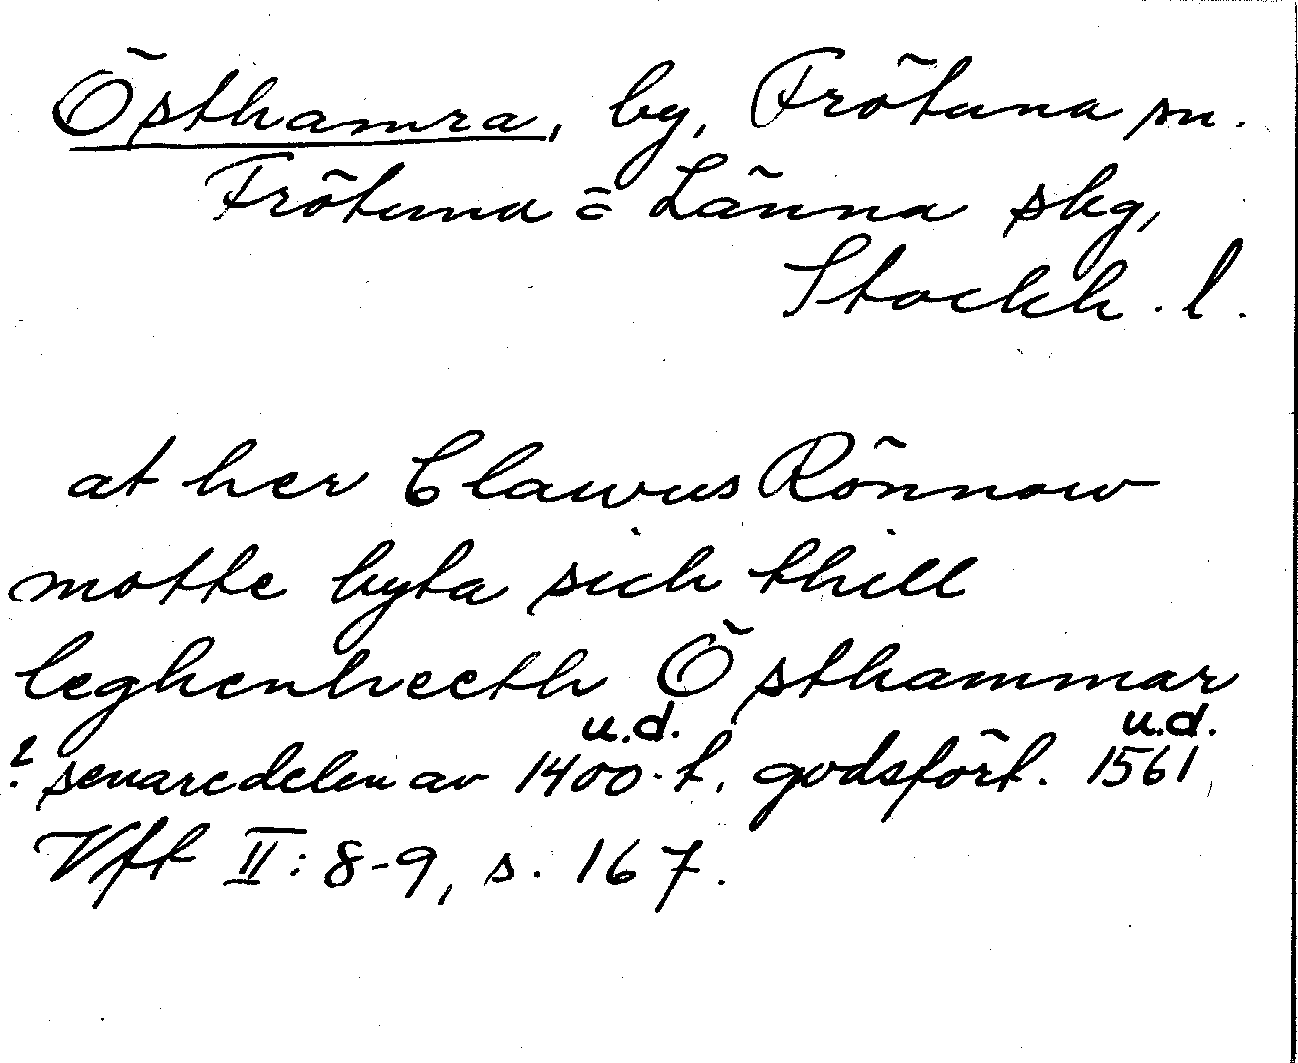 Östhamra, by, Frötuna sn.
Frötuna o Länna skg,
Stockh. l.
at her Clawus Rönnow
motte byta sich thill
leghenheeth Östhammar
u.d. u.d.
? senaredelen av 1400-t. godsfört. 1561,
Vft II: 8-9, s. 167.